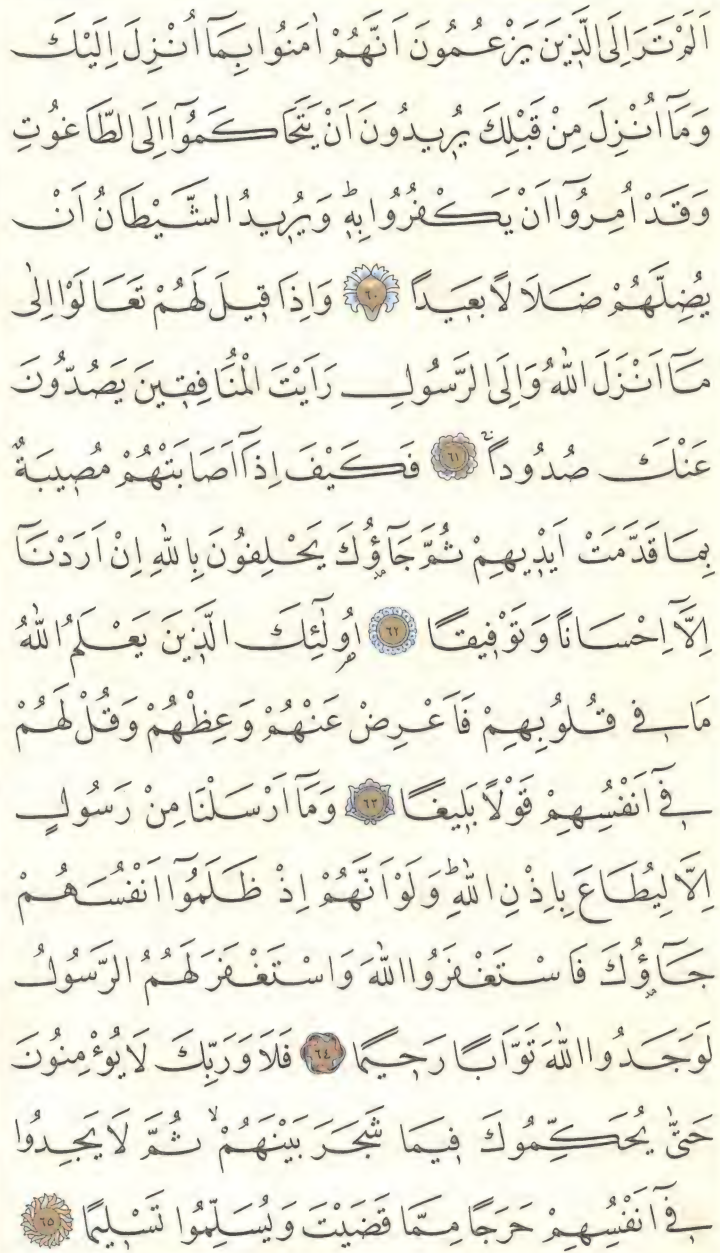 اَلَمْ تَرَ اِلَى الَّذ۪ينَ يَزْعُمُونَ اَنَّهُمْ اٰمَنُوا بِمَٓا اُنْزِلَ اِلَيْكَ
وَمَٓا اُنْزِلَ مِنْ قَبْلِكَ يُر۪يدُونَ اَنْ يَتَحَاكَمُٓوا اِلَى الطَّاغُوتِ
وَقَدْ اُمِرُٓوا اَنْ يَكْفُرُوا بِه۪ۜ وَيُر۪يدُ الشَّيْطَانُ اَنْ
يُضِلَّهُمْ ضَلَالًا بَع۪يدًا ٦٠ وَاِذَا ق۪يلَ لَهُمْ تَعَالَوْا اِلٰى
مَٓا اَنْزَلَ اللّٰهُ وَاِلَى الرَّسُولِ رَاَيْتَ الْمُنَافِق۪ينَ يَصُدُّونَ
عَنْكَ صُدُودًاۚ ٦١ فَكَيْفَ اِذَٓا اَصَابَتْهُمْ مُص۪يبَةٌ
بِمَا قَدَّمَتْ اَيْد۪يهِمْ ثُمَّ جَٓاؤُ۫كَ يَحْلِفُونَ بِاللّٰهِ اِنْ اَرَدْنَٓا
اِلَّٓا اِحْسَانًا وَتَوْف۪يقًا ٦٢ اُو۬لٰٓئِكَ الَّذ۪ينَ يَعْلَمُ اللّٰهُ
مَا ف۪ي قُلُوبِهِمْ فَاَعْرِضْ عَنْهُمْ وَعِظْهُمْ وَقُلْ لَهُمْ
ف۪ٓي اَنْفُسِهِمْ قَوْلًا بَل۪يغًا ٦٣ وَمَٓا اَرْسَلْنَا مِنْ رَسُولٍ
اِلَّا لِيُطَاعَ بِاِذْنِ اللّٰهِۜ وَلَوْ اَنَّهُمْ اِذْ ظَلَمُٓوا اَنْفُسَهُمْ
جَٓاؤُ۫كَ فَاسْتَغْفَرُوا اللّٰهَ وَاسْتَغْفَرَ لَهُمُ الرَّسُولُ
لَوَجَدُوا اللّٰهَ تَوَّابًا رَح۪يمًا ٦٤ فَلَا وَرَبِّكَ لَا يُؤْمِنُونَ
حَتّٰى يُحَكِّمُوكَ ف۪يمَا شَجَرَ بَيْنَهُمْۙ ثُمَّ لَا يَجِدُوا
ف۪ٓي اَنْفُسِهِمْ حَرَجًا مِمَّا قَضَيْتَ وَيُسَلِّمُوا تَسْل۪يمًا ٦٥